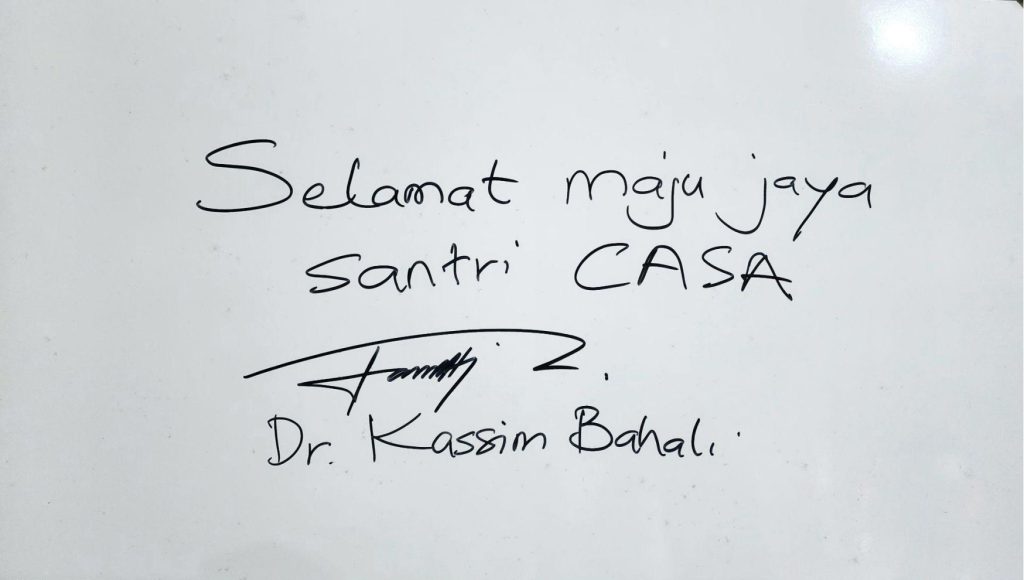 Selamat maju jaya
santri CASA
Dr. Kassim Bahali.